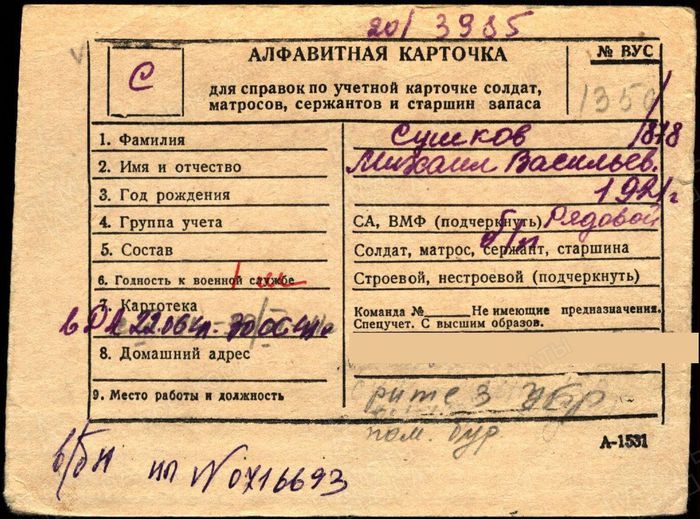 20/ 3985
АЛФАВИТНАЯ КАРТОЧКА
№ ВУС
С
для справок по учетной карточке солдат,
матросов, сержантов и старшин запаса
1350
1. Фамилия Сушков 1878
2. Имя и отчество Михаил Васильев.
3. Год рождения 1921г
4. Группа учета СА, ВМФ (подчеркнуть) Рядовой
5. Состав б/п Солдат, матрос, сержант, старшина
6. Годность к военной службе Строевой, нестроевой (подчеркнуть)
7. Картотека Команда № Не имеющие предназначения.
Спецучет. С высшим образов.
8. Домашний адрес
9. Место работы и должность 3 УБР
пом. бур
А-1531
в/бн нп № 0716693